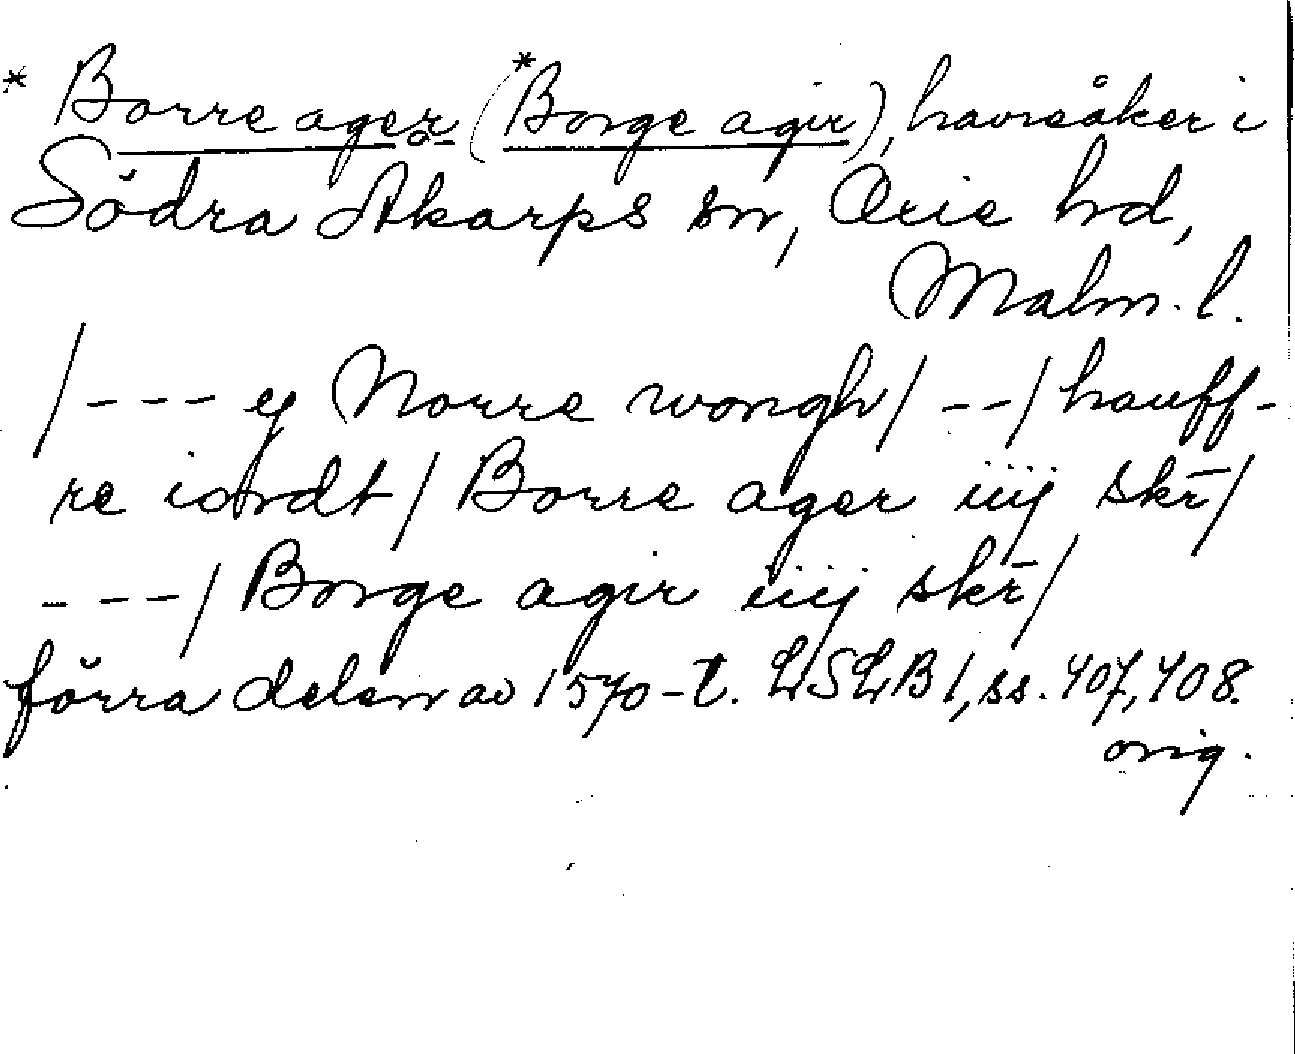 * Borre ager (*Borge agir), havreåker i
Södra Åkarps sn, Oxie hd,
Malm. l.
/--- ej Norre wongh/ --/ hauff-
re iordt/ Borre ager iiij skr̄/
---/ Borge agir iiij skr̄/
förra delen av 1570-t. LSLB 1, ss. 407, 408.
orig.